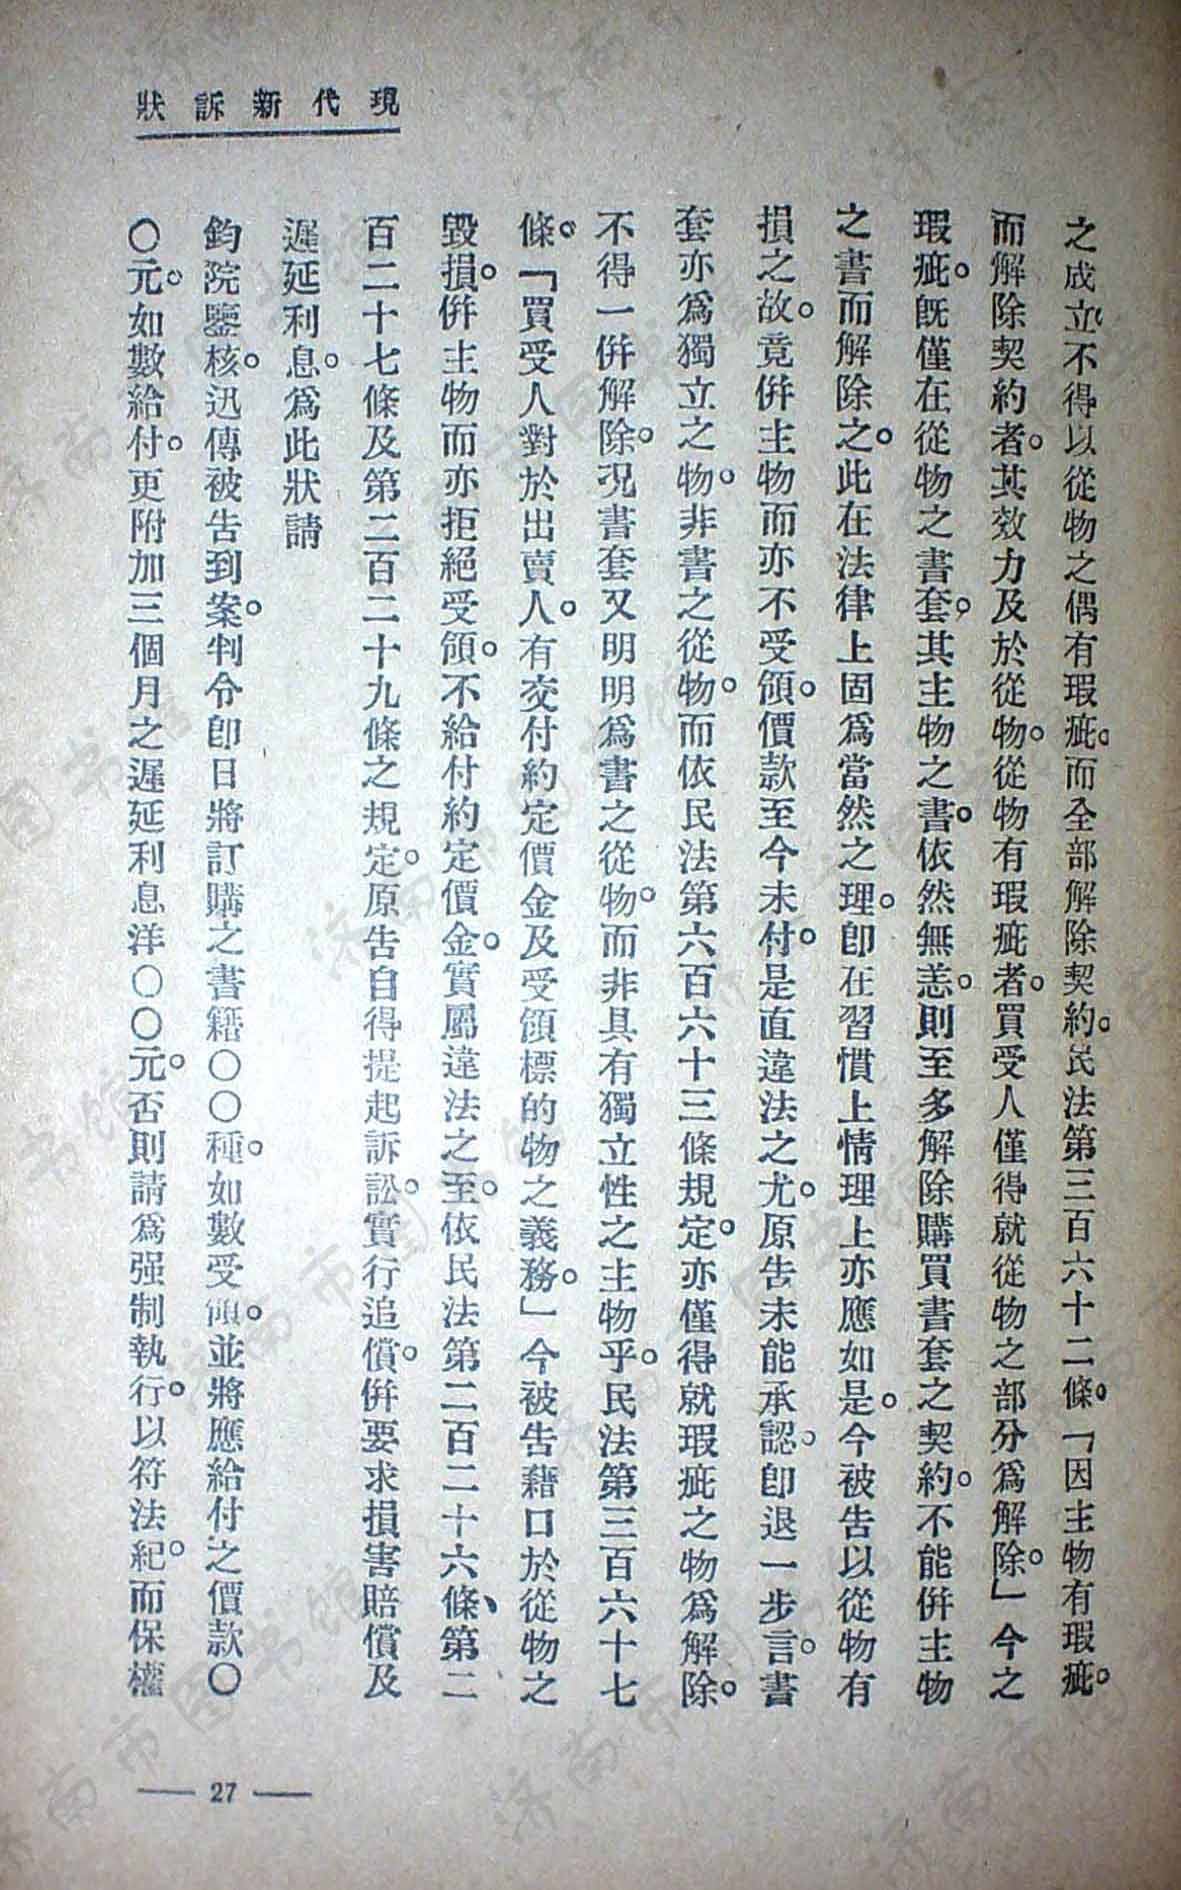 現代新訴狀
之成立。不得以從物之偶有瑕疵。而全部解除契約。民法第三百六十二條。「因主物有瑕疵。
而解除契約者。其效力及於從物。從物有瑕疵者。買受人僅得就從物之部分爲解除。」今之
瑕疵。旣僅在從物之書套。其主物之書。依然無恙。則至多解除購買書套之契約。不能併主物
之書而解除之。此在法律上固爲當然之理。卽在習慣上情理上亦應如是。今被告以從物有
損之故。竟併主物而亦不受領。價款至今未付。是直違法之尤。原告未能承認。卽退一步言。書
套亦爲獨立之物。非書之從物。而依民法第六百六十三條規定。亦僅得就瑕疵之物爲解除。
不得一併解除。况書套又明明爲書之從物。而非具有獨立性之主物乎。民法第三百六十七
條。「買受人對於出賣人。有交付約定價金及受領標的物之義務。」今被告藉口於從物之
毀損。併主物而亦拒絕受領。不給付約定價金。實屬違法之至。依民法第二百二十六條、第二
百二十七條及第二百二十九條之規定。原告自得提起訴訟。實行追償。併要求損害賠償及
遲延利息。爲此狀請
鈞院鑒核。迅傳被告到案。判令卽日將訂購之書籍〇〇種。如數受領。並將應給付之價款〇
〇元。如數給付。更附加三個月之遲延利息洋〇〇元。否則請爲强制執行。以符法紀。而保權
— 27 —
济南市图书馆